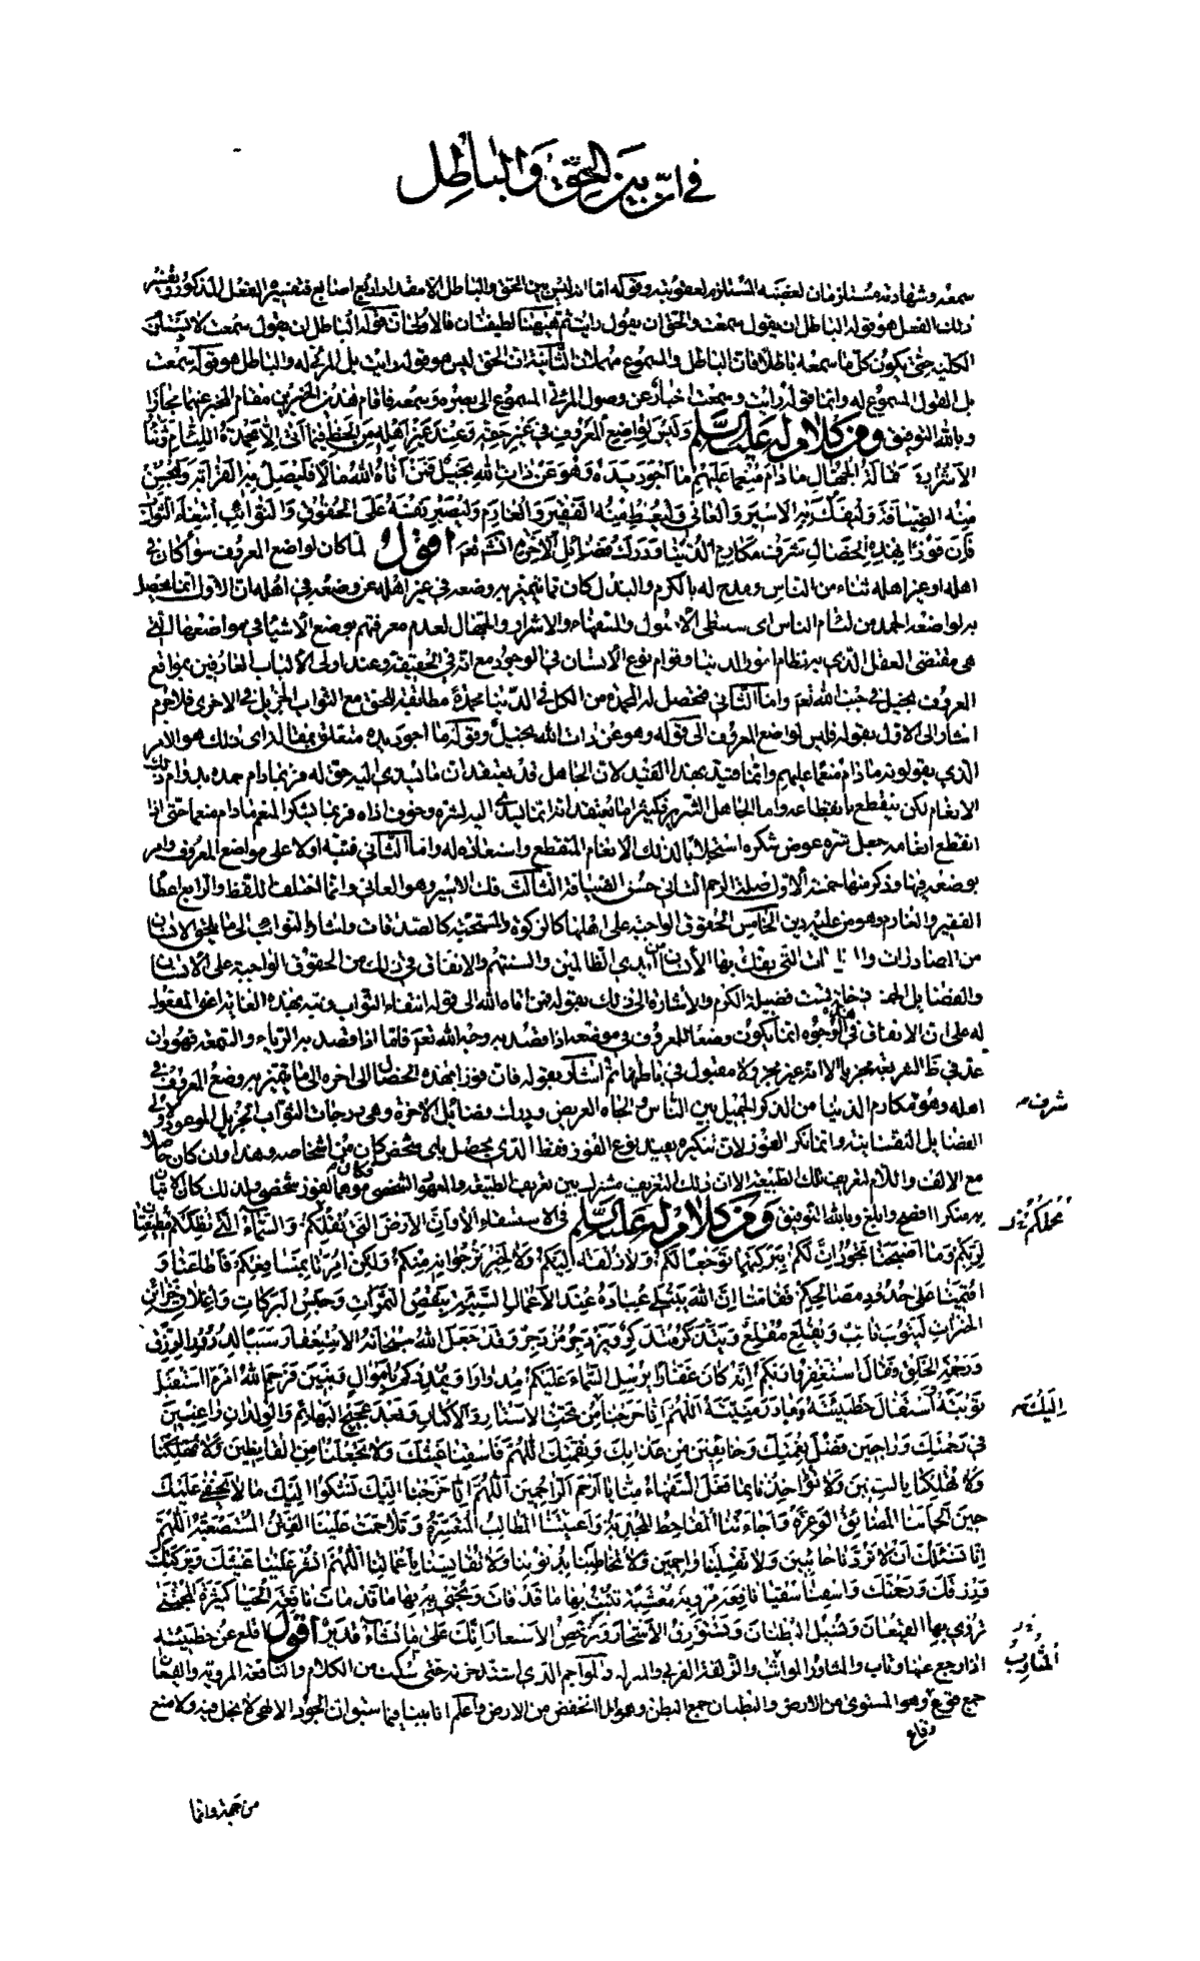 في انّ بين الحقّ والباطل
سمعه وشهادته مستلزمان لغضبه المستلزم لعقوبته وقوله اما انه ليس بين الحق والباطل الا مقدار اربع اصابع فتفسيره الفعل المذكور وتفسير
ذلك الفعل هو قوله الباطل ان يقول سمعت والحق ان يقول رايت ثم هيهنا لطيفتان فالاولى ان قوله الباطل ان يقول سمعت لا يستلزم
الكلية حتى يكون كل ما سمعه باطلا فان الباطل والمسموع مهملان الثانية ان الحق ليس هو قوله رايت بل المرئي له والباطل هو قوله سمعت
بل القول المسموع له وانما قوله رايت وسمعت اخبار عن وصول المرئي المسموع الى بصره وسمعه فاقام هذين الخبرين مقام المخبر عنهما مجازا
وبالله التوفيق ومن كلام له عليه السلام وليس لواضع المعروف في غير حقه وعند غير اهله من الحظ فيما اتى الا محمدة اللئام وثناء
الاشرار ومقالة الجهال ما دام منعما عليهم ما اجود يده وهو عن ذات الله بخيل فمن اتاه الله مالا فليصل به القرابة وليحسن
منه الضيافة وليفك به الاسير والعاني وليعط منه الفقير والغارم وليصبر نفسه على الحقوق والنوائب ابتغاء الثواب
فان فوزا بهذه الخصال شرف مكارم الدنيا ودرك فضائل الاخرة انشاء الله تعم اقول لما كان لواضع المعروف سواء كان في
اهله او غير اهله ثناء من الناس ومدح له بالكرم والبذل كان مما يتميز به وضعه في غير اهله عن وضعه في اهله ان الاول انما يحصل
به لواضعه الحمد من لئام الناس اي سقطي الاصول والسفهاء والاشرار والجهال لعدم معرفتهم بوضع الاشياء في مواضعها التي
هي مقتضى العقل الذي به نظام امور الدنيا وقوام نوع الانسان في الوجود مع انه في الحقيقة وعند اولى الالباب العارفين بمواقع
المعروف بخيل في جنب الله تعم واما الثاني فتحصل له المحمدة من الكل في الدنيا محمدة مطابقة للحق مع الثواب الجزيل في الاخرى فلا جرم
اشار الى الاول بقوله وليس لواضع المعروف الى قوله وهو عن ذات الله بخيل وقوله ما اجود يده متعلق بمقالة اي ذلك هو الامر
الذي يقولونه ما دام منعما عليهم وانما قيد بهذا القيد لان الجاهل قد يعتقد ان ما يسدى اليه حق له فربما دام حمده بدوام ذلك
الانعام لكن ينقطع بانقطاعه واما الجاهل الشرير فكثيرا ما يعتقد انه انما يسدى اليه لشره وخوف اذاه فربما يشكر المنعم ما دام منعما حتى اذا
انقطع انعامه جعل شره عوض شكره استجلابا لذلك الانعام المنقطع واستعاذة له واما الثاني فنبه اولا على مواضع المعروف وامر
بوضعه فيها وذكر منها خمسة الاول صلة الرحم الثاني حسن الضيافة الثالث فك الاسير وهو العاني وانما اختلف اللفظ والرابع اعطاء
الفقير والغارم وهو من عليه دين الخامس الحقوق الواجبة على اهلها كالزكوة والمستحبة كالصدقات واشار بالنوائب الى ما يلحق الانسان
من المصادرات التي يفك بها الانسان من ايدي الظالمين والسنتهم والانفاق في ذلك من الحقوق الواجبة على الانسان
والفضائل داخلة تحت فضيلة الكرم والاشارة الى ذلك بقوله فمن اتاه الله الى قوله ابتغاء الثواب ونبه بهذه الغاية اعني المفعول
له على ان الانفاق في هذه الوجوه انما يكون وضعا للمعروف في موضعه اذا قصد به وجه الله تعم فاما اذا قصد به الرياء والسمعة فهو وان
عد في ظاهر الشريعة مجزيا الا انه غير مجز ولا مقبول في باطنها ثم اشار بقوله فان فوزا بهذه الخصال الى اخره الى ما يتميز به وضع المعروف في
اهله وهو مكارم الدنيا من الذكر الجميل بين الناس والجاه العريض ودرك فضائل الاخرة وهي درجات الثواب الجزيل الموعود لاولى
شرف
الفضايل النفسانية وانما نكر الفوز لان تنكيره يفيد نوع الفوز فقط الذي يحصل باي شخص كان من اشخاصه وهذا وان كان حاصلا
مع الالف واللام لتعريف تلك الطبيعة الا ان ذلك التعريف مشترك بين تعريف الطبيعة والمعهود الشخصي فكان موهما لفوز شخصي ولذلك كان الاتيان
به منكرا افصح وابلغ وبالله التوفيق ومن كلام له عليه السلام في الاستسقاء الا وان الارض التي تقلكم والسماء التي تظلكم مطيعتان
تحملكم خ
لربكم وما اصبحتا تجودان لكم ببركتهما توجعا لكم ولا زلفة اليكم ولا لخير ترجوانه منكم ولكن امرتا بمنافعكم فاطاعتا و
اقيمتا على حدود مصالحكم فقامتا ان الله يبتلي عباده عند الاعمال السيئة بنقص الثمرات وحبس البركات واغلاق خزائن
الخيرات ليتوب تائب ويقلع مقلع ويتذكر متذكر ويزدجر مزدجر وقد جعل الله سبحانه الاستغفار سببا لدرور الرزق
ورحمة الخلق وقال استغفروا ربكم انه كان غفارا يرسل السماء عليكم مدرارا ويمددكم باموال وبنين فرحم الله امرءا استقبل
توبته واستقال خطيئته وبادر منيته اللهم انا خرجنا اليك من تحت الاستار والاكنان وبعد عجيج البهائم والولدان راغبين
اليك
في رحمتك وراجين فضل نعمتك وخائفين من عذابك ونقمتك اللهم فاسقنا غيثك ولا تجعلنا من القانطين ولا تهلكنا
ولا تهلكنا بالسنين ولا تؤاخذنا بما فعل السفهاء منا يا ارحم الراحمين اللهم انا خرجنا اليك نشكوا اليك ما لا يخفى عليك
حين الجأتنا المضائق الوعرة واجاءتنا المقاحط المجدبة واعيتنا المطالب المتعسرة وتلاحمت علينا الفتن المستصعبة اللهم
انا نسئلك ان لا تردنا خائبين ولا تقلبنا واجمين ولا تخاطبنا بذنوبنا ولا تقايسنا باعمالنا اللهم انشر علينا غيثك وبركتك
ورزقك ورحمتك واسقنا سقيا نافعة مروية معشبة تنبت بها ما قد فات وتحيي بها ما قد مات نافعة الحيا كثيرة المجتنى
تروي بها القيعان وتسيل البطنان وتستورق الاشجار وترخص الاسعار انك على ما تشاء قدير اقول اقلع عن خطيئته
اذا رجع عنها وتاب والواجم الذي اشتد حزنه حتى سكت من الكلام والنافعة المروية والقيعان
المثاوب
جمع قاع وهو المستوى من الارض والبطنان جمع البطن وهو ما انخفض من الارض واعلم انا بينا فيما سبق ان الجود الالهي لا بخل فيه ولا منع
من جهته وانما